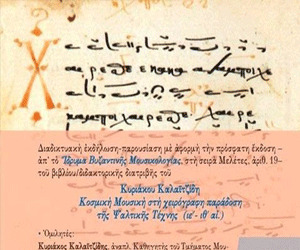 Διαδικτυακὴ ἐκδήλωση-παρουσίαση μὲ ἀφορμὴ τὴν πρόσφατη ἔκδοση –
ἀπ' τὸ Ἵδρυμα Βυζαντινῆς Μουσικολογίας, στὴ σειρὰ Μελέτες, ἀριθ. 19–
τοῦ βιβλίου/διδακτορικῆς διατριβῆς τοῦ
Κυριάκου Καλαϊτζίδη
Κοσμικὴ Μουσικὴ στὴ χειρόγραφη παράδοση
τῆς Ψαλτικῆς Τέχνης (ιε'- ιθ' αἰ.)
• Ὁμιλητές:
Κυριάκος Καλαϊτζίδης, ἀναπλ. Καθηγητὴς τοῦ Τμήματος Μου-